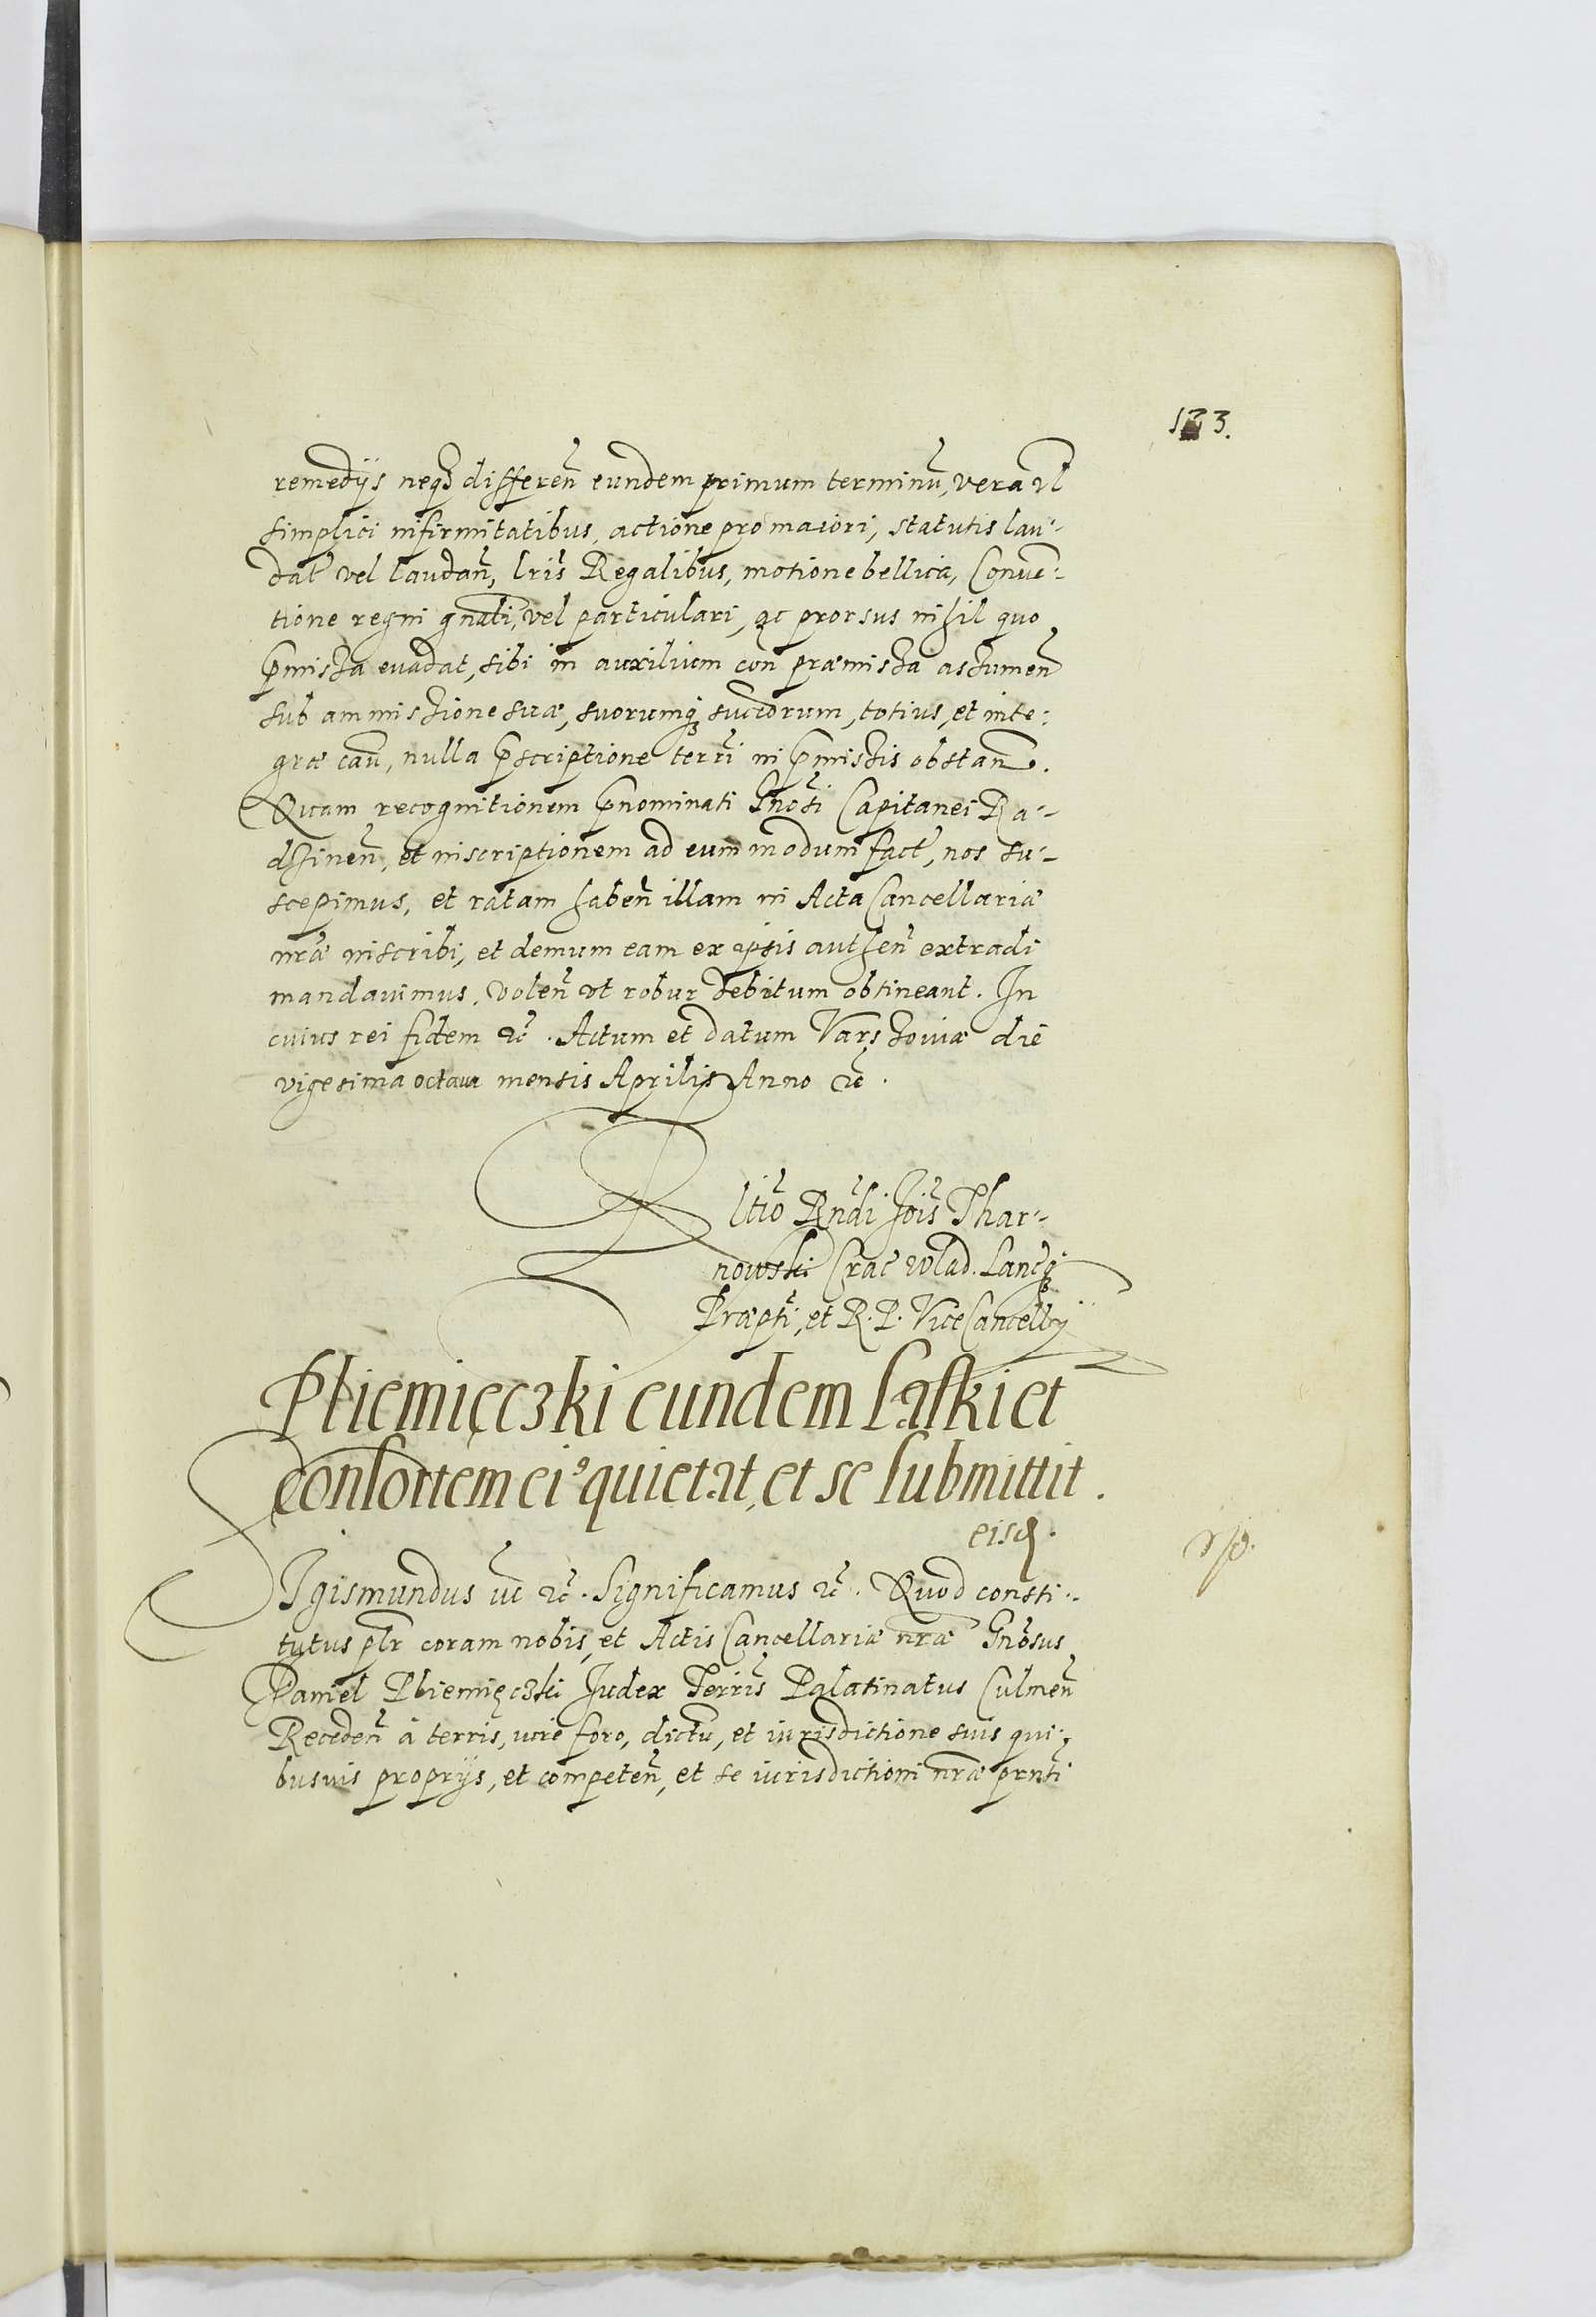 133.
remedijs neq3 differen̄ eundem primum terminū, vera vl
simplici infirmitatibus, actione pro maiori, statutis lau-
dat̄ vel laudan̄, lr̄is Regalibus, motione bellica, Conuē-
tione regni gnāli, vel particulari, ac prorsus nihil quo
p̄missa euadat, sibi in auxilium con præmissa assumen̄
sub ammissione suæ, suorumq3 succōrum, totius, et inte-
græ cāū, nulla p̄scriptione terr̄i in p̄missis obstan̄.
Quam recognitionem p̄nominati Gn̄osi Capitanei Ra-
dzinen̄, et inscriptionem ad eum modum fact̄, nos su-
scepimus, et ratam haben̄ illam in Acta Cancellariæ
nr̄æ inscribi, et demum eam ex ipsis authen̄ extradi
mandauimus, volen̄ vt robur debitum obtineant. In
cuius rei fidem &c̄. Actum et datum Varssouiæ die
vigesima octaua mensis Aprilis Anno &c̄.
Rltiō Rn̄di Jōis Thar-
nowski Crac̄ wlad. Lanc̄q3
Præpt̄i, et R. P. ViceCancellrij
Pliemięczki eundem Laski et
consortem ei9 quietat, et se submittit.
eisd.
SIgismundus iii &c̄. Significamus &c̄. Quod consti-
tutus pl̄r coram nobis, et Actis Cancellariæ nr̄æ Gn̄osus
Daniel Pliemięczki Judex Terris̄ Palatinatus Culmen̄
Receden̄ à terris, iūre foro, distctū, et iurisdictione suis qui-
busuis proprijs, et competen̄, et se iurisdictioni nr̄æ prn̄ti